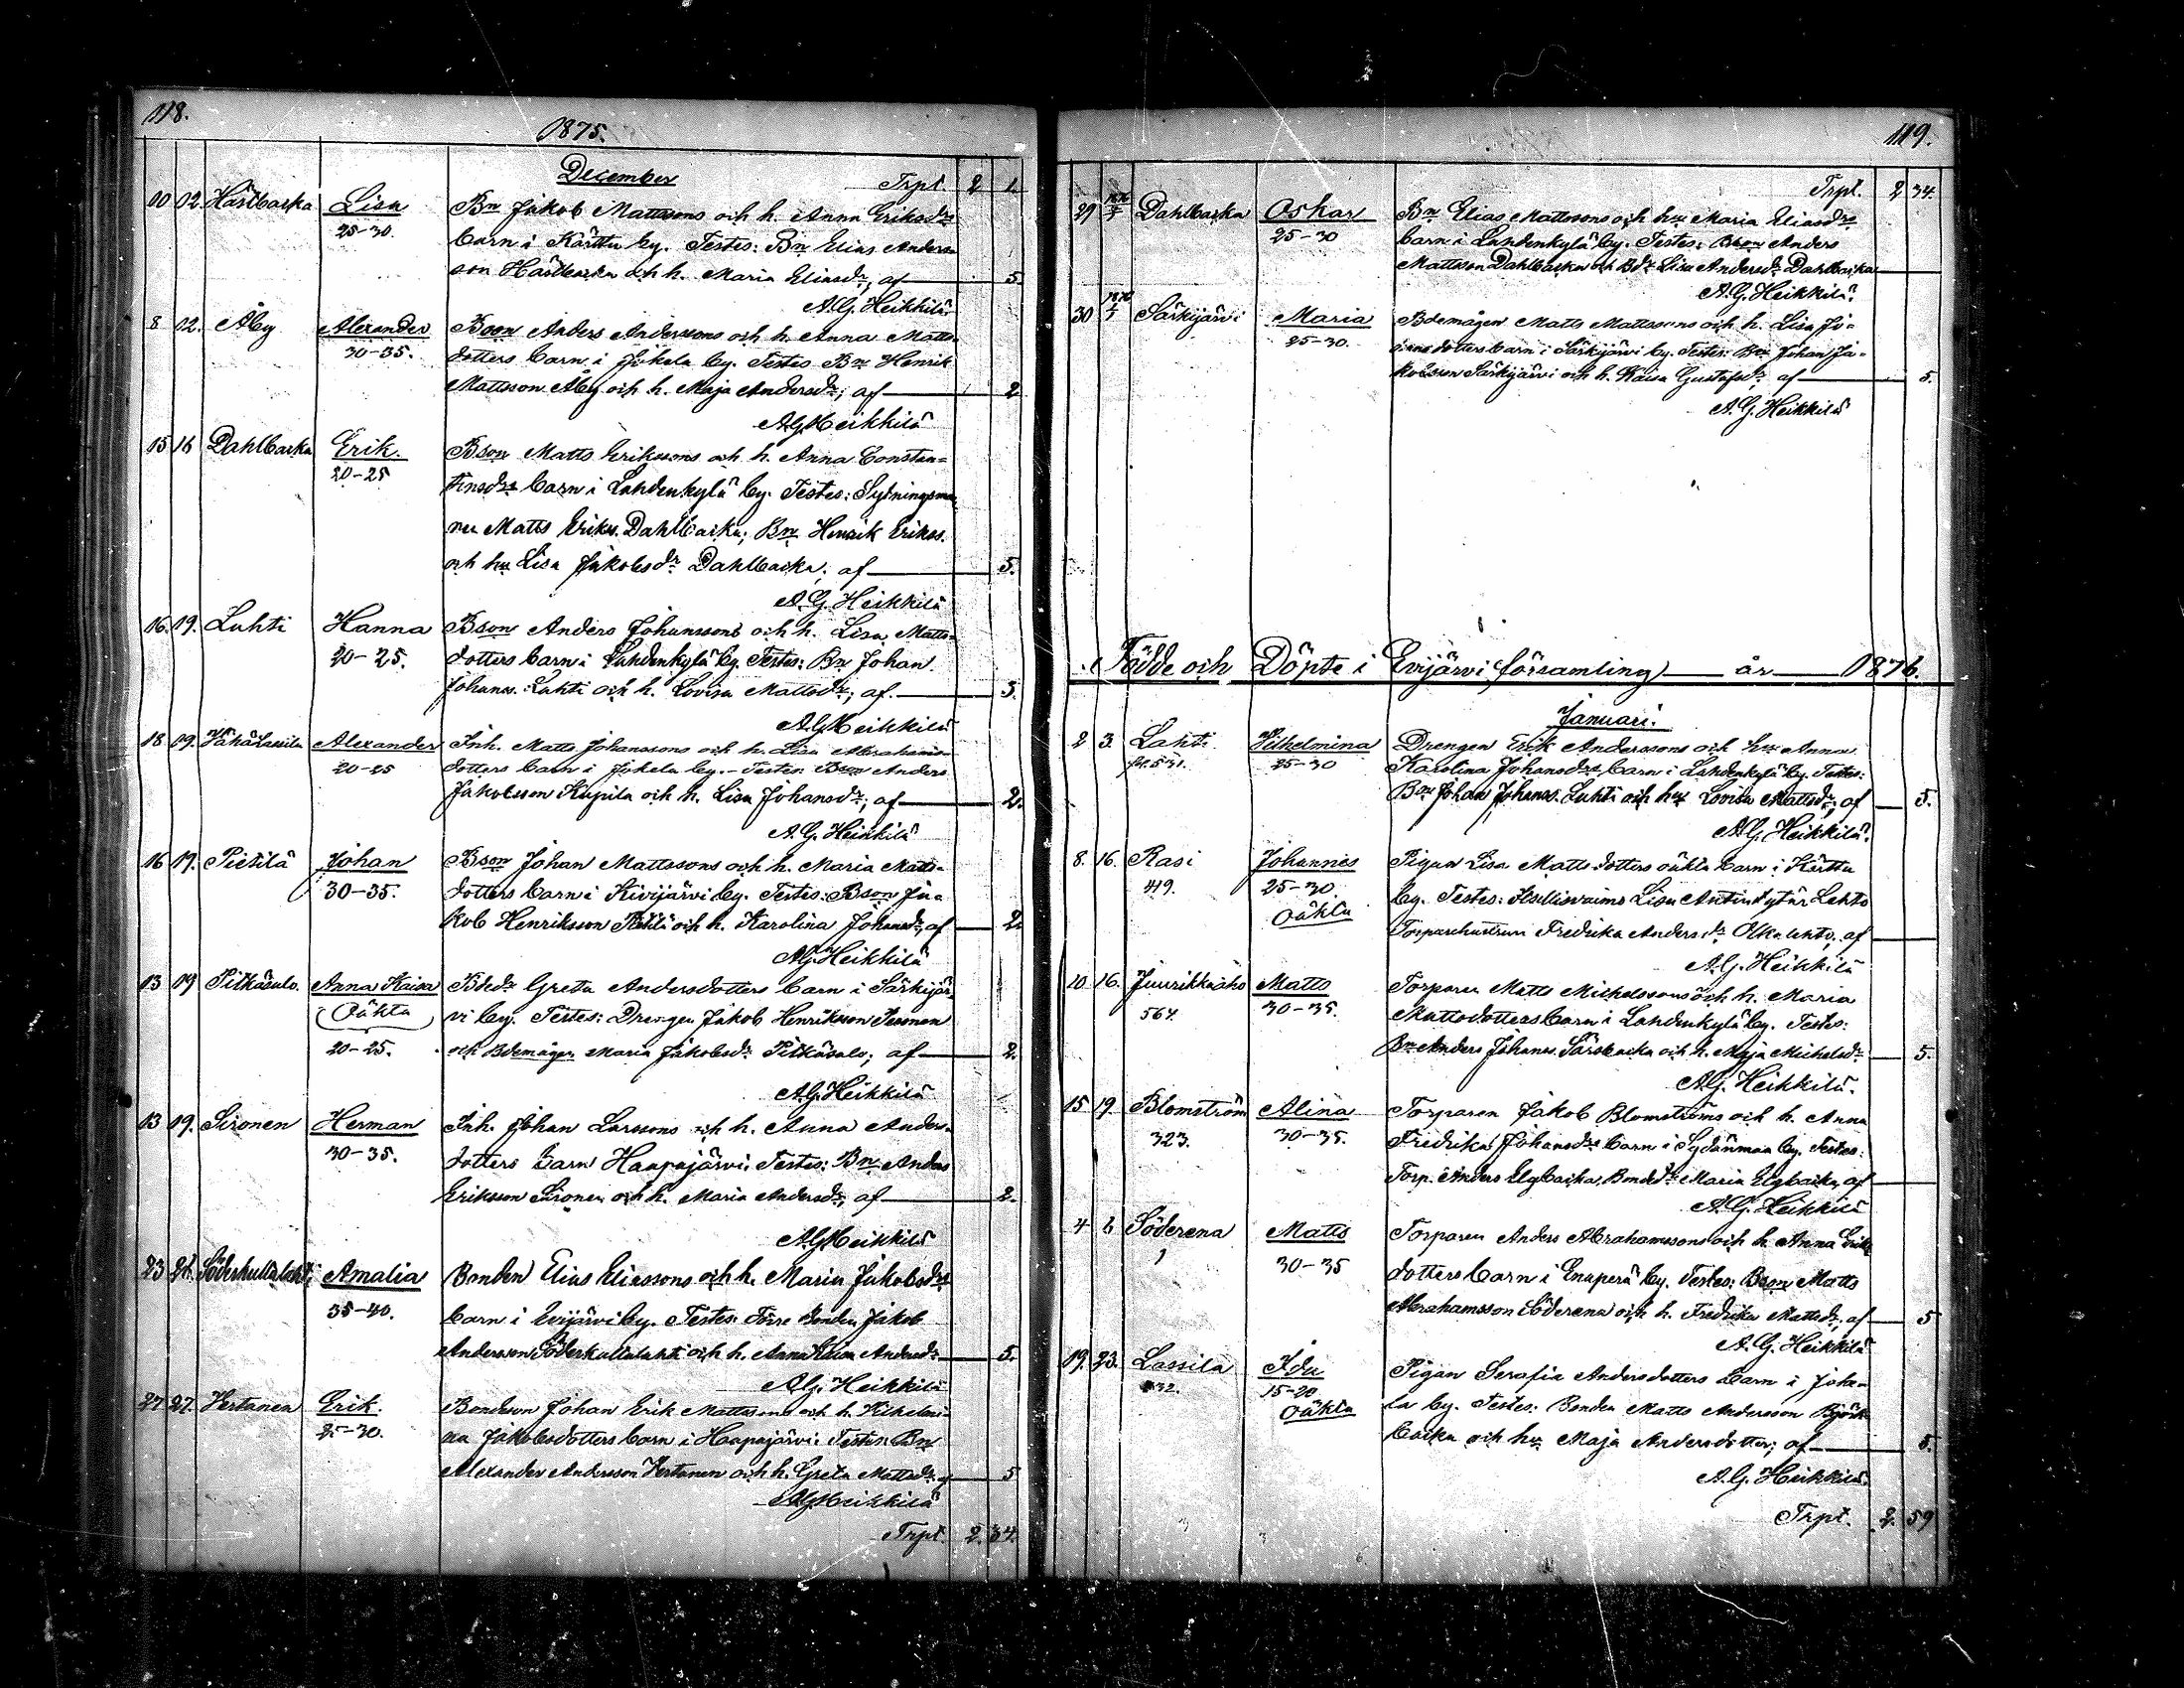 118.
1875.
December
Trpt 2 1.
10 12. Hästbacka Lisa Bn Jakob Mattssons och h. Anna Eriksdrs
25-30. barn i Kärttu by. Testes: Bn Elias Anders-
son Hästbacka och h. Maria Eliasdr, af 5
A.G. Heikkilä
8 12. Åby Alexander Bson Anders Anderssons och h. Anna Matts-
30-35. dotters barn i Jokela by. Testes Bn Henrik
Mattsson Åby och h. Maja Andersdr, af 2
A.G. Heikkilä
15 16 Dahlbacka Erik. Bson Matts Erikssons och h. Anna Constan-
20-25 tinsdrs barn i Lahdenkylä by. Testes: Sytningsma
nen Matts Eriks. Dahlbacka, Bn Henrik Erikss.
och hu Lisa Jakobsdr Dahlbacka, af 5.
A.G. Heikkilä
16. 19. Luhti Hanna Bson Anders Johanssons och h. Lisa Matts-
20-25. dotters barn i Lahdenkylä by. Testes: Bn Johan
Johans. Luhti och h. Lovisa Mattsdr, af 5.
A.G. Heikkilä
18 19. Vähälassila Alexander Inh. Matts Johanssons och h. Lisa Abrahams-
20-25 dotters barn i Jokela by. Testes: Bson Anders
Jakobsson Kupila och h. Lisa Johansdr, af 2.
A.G. Heikkilä
16 19. Pietilä Johan Bson Johan Mattssons och h. Maria Matts-
30-35. dotters barn i Kivijärvi by. Testes: Bson Ja-
kob Henriksson Pietilä och h. Karolina Johansdr, af 2.
A.G. Heikkilä
13 19 Pitkäsalo. Anna Kaisa Bdedr Greta Andersdotters barn i Särkijär
Oäkta vi by. Testes: Drengen Jakob Henriksson
20-25. och Bdemågen Maria Jakobsdr Pitkäsalo; af 2.
A.G. Heikkilä
13 19. Sironen Herman Inh. Johan Larssons och h. Anna Anders-
30-35. dotters barn Haapajärvi. Testes: Bn Anders
Eriksson Sironen och h. Maria Andersdr, af 2.
A.G. Heikkilä
23 26. Söderkultalahti Amalia Bonden Elias Eliassons och h. Maria Jakobsdrs
35-40. barn i Evijärvi by. Testes: Förre Bonden Jakob
Andersson Söderkultalahti och h. Anna Kaisa Andersdr 5.
A.G. Heikkilä
27 27. Kertanen Erik. Bondeson Johan Erik Mattssons och h. Vilhelmi-
25-30. na Jakobsdotters barn i Haapajärvi: Testes: Bn
Alexander Andersson Kertanen och h. Greta Mattsdr, af 5
A.G. Heikkilä
Trpt. 2. 34.
119.
Trpt. 2 34.
29 Dahlbacka Oskar Bn Elias Mattssons och hu Maria Eliasdrs
25-30 barn i Lahdenkylä by. Testes: Bson Anders
Mattsson Dahlbacka och Bdr Lisa Andersdr Dahlbacka
A.G. Heikkilä.
30 Särkijärvi Maria Bdemågen Matts Mattssons och h. Lisa Jo-
25-30. hans dotters barn i Särkijärvi by. Testes: Bn Johan Ja-
kobsson Särkijärvi och h. Kaisa Gustafsdr, af 5.
A.G. Heikkilä
Födde och Döpte i Evijärvi församling år 1876.
Januari.
2 3. Lahti Vilhelmina Drengen Erik Anderssons och hu Anna
25-30 Karolina Johansdrs barn i Lahdenkylä by. Testes:
Bn Johan Johans. Luhti och hu Lovisa Mattsdr, af 5.
A.G. Heikkilä.
8. 16. Rasi Johannes Pigan Lisa Matts dotters oäkta barn i Kärttu
419. 25-30. by. Testes: Itsellisvaimo Lisa Antintytär Lehto
Oäkta Torparehustrun Fredrika Anders dr, af
A.G. Heikkilä
10 16. Juurikkaaho Matts Torparen Matts Michelssons och h. Maria
564. 30-35. Mattsdotters barn i Lahdenkylä by. Testes:
Bn Anders Johans. Särsbacka och h. Maja Michelsdr 5.
A.G. Heikkilä.
15 19 Blomström Alina Torparen Jakob Blomströms och h. Anna
323. 30-35. Fredrika Johansdrs barn i Sydänmaa by. Testes:
Torp. Anders Elgbacka, Bondedr Maria Elgbacka, af
A.G. Heikkilä
4 6 Söderena Matts Torparen Anders Abrahamssons och h. Anna Eriks
1 30-35 dotters barn i Enaperä by. Testes: Bson Matts
Abrahamsson Söderena och h. Fredrika Mattsdr, af 5
A.G. Heikkilä
19. 23. Lassila Ida Pigan Serafia Andersdotters barn i Joke-
15-20 la by. Testes: Bonden Matts Andersson Björk
Oäkta backa och hu Maja Andersdotter; af 5.
A.G. Heikkilä.
Trpt. 2. 59